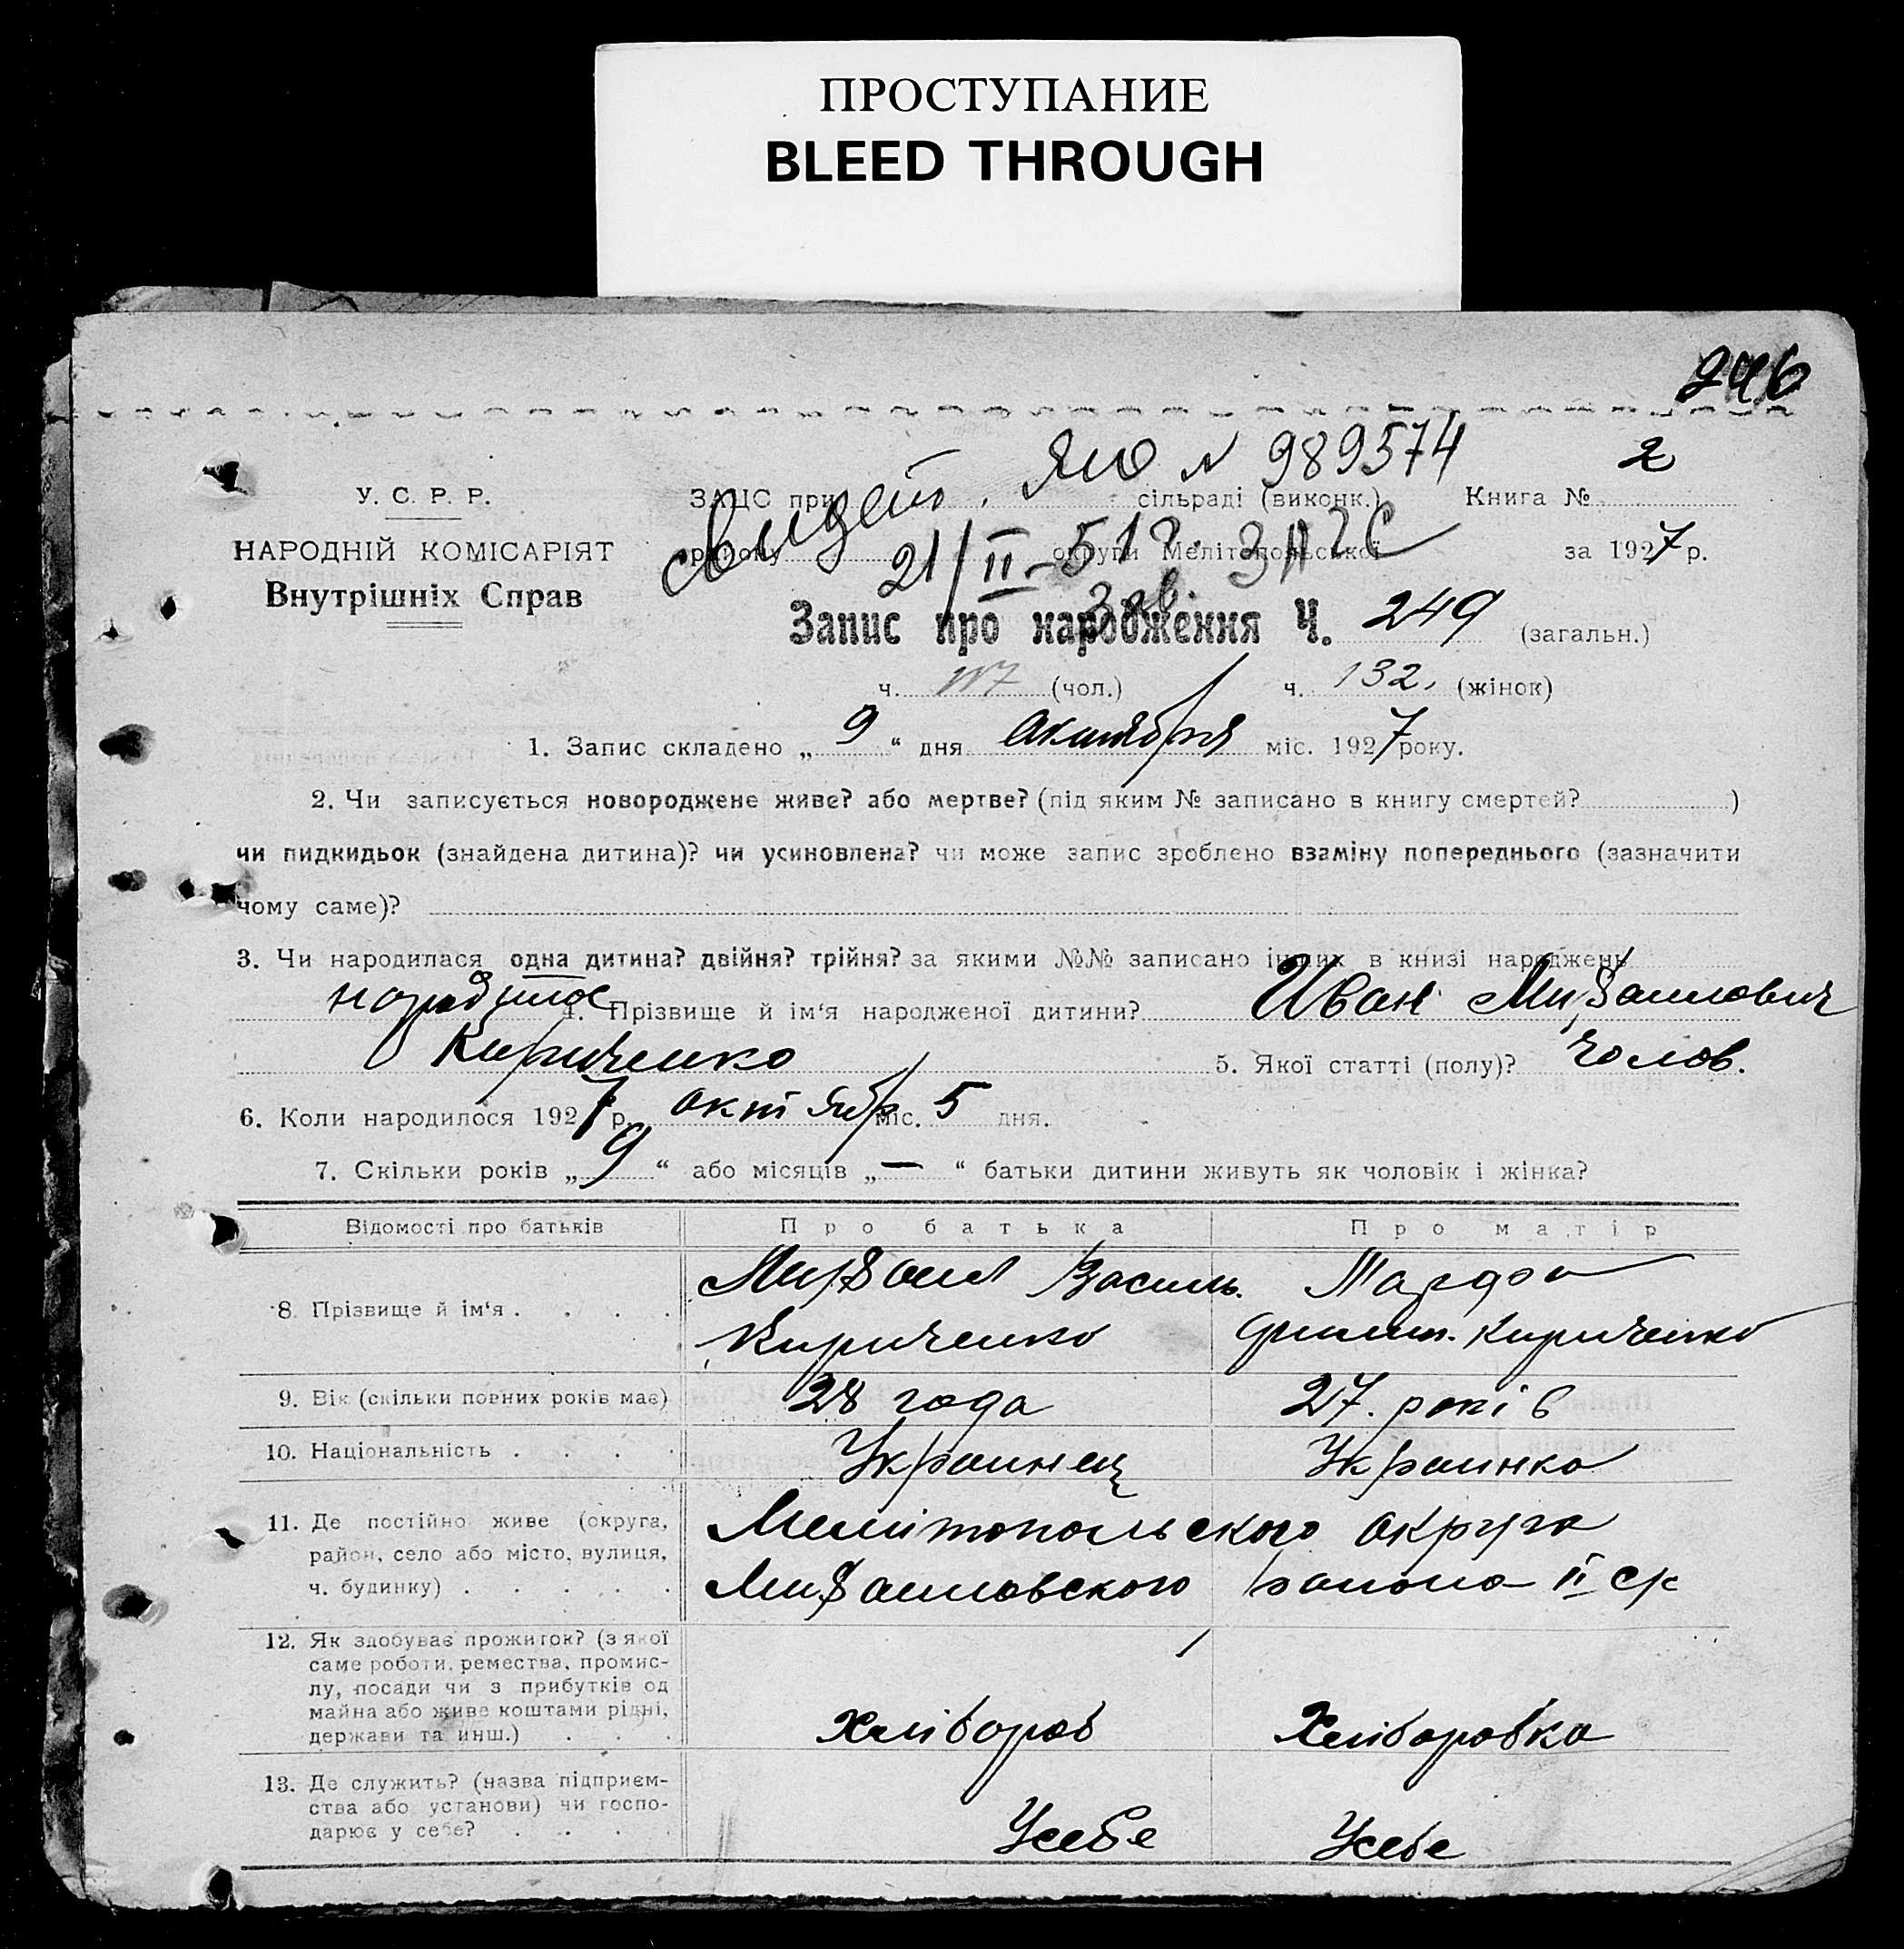 ПРОСТУПАНИЕ
BLEED THROUGH
246
Свидет. ЯЮ N 989574
У. С. Р. Р.
ЗАЦС при сільраді (виконк.) Книга № 2
21/II-51г. ЗАГС
НАРОДНІЙ КОМІСАРІЯТ
району округи Мелітопольської за 1927 р.
Внутрішніх Справ
Запис про народження Ч. 249 (загальн.)
ч. 117 (чол.) ч. 132. (жінок)
1. Запис складено „ 9 “ дня Октября міс. 1927 року.
2. Чи записується новороджене живе? або мертве? (під яким № записано в книгу смертей? )
чи пидкидьок (знайдена дитина)? чи усиновлена? чи може запис зроблено взаміну попереднього (зазначити
чому саме)?
3. Чи народилася одна дитина? двійня? трійня? за якими №№ записано інших в книзі народжень
4. Прізвище й ім‘я народженої дитини? Иван Михайлович
Кириченко 5. Якої статті (полу)? Чолов.
6. Коли народилося 1927 р. октябр міс. 5 дня.
7. Скільки років „ 9 “ або місяців „ — “ батьки дитини живуть як чоловік і жінка?
Відомості про батьків Про батька Про матір
8. Прізвище й ім‘я . . . . Михаил Василь. Марфа
Кириченко Кириченко
9. Вік (скільки повних років має) 28 года 27. років
10. Національність . . . . Украинец Украинка
11. Де постійно живе (округа,
район, село або місто, вулиця,
ч. будинку) . . . . .
Мелітопольского округа
Михайловского района II ср
12. Як здобуває прожиток? (з якої
саме роботи, ремества, промис-
лу, посади чи з прибутків од
майна або живе коштами рідні,
держави та инш.) . . .
Хлібороб Хлиборобка
13. Де служить? (назва підприєм-
ства або установи) чи госпо-
дарює у себе? . . . .
Усебе Усебе